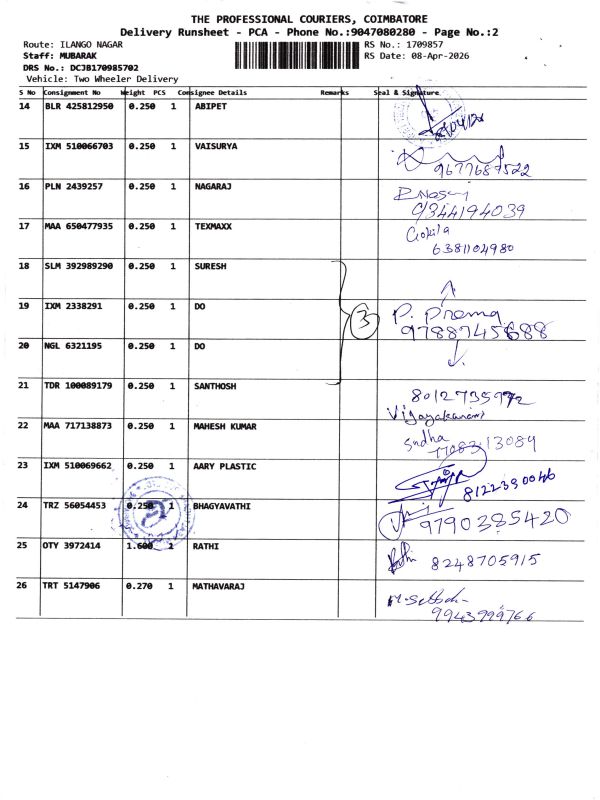 THE PROFESSIONAL COURIERS, COIMBATORE
Delivery Runsheet - PCA - Phone No.:9047080280 - Page No.:2
Route: ILANGO NAGAR RS No.: 1709857
Staff: MUBARAK RS Date: 08-Apr-2026
DRS No.: DCJB170985702
Vehicle: Two Wheeler Delivery
S No Consignment No Weight PCS Consignee Details Remarks Seal & Signature
14 BLR 425812950 0.250 1 ABIPET
15 IXM 510066703 0.250 1 VAISURYA
9677687522
16 PLN 2439257 0.250 1 NAGARAJ
9344194039
17 MAA 650477935 0.250 1 TEXMAXX Gokila
6381104980
18 SLM 392989290 0.250 1 SURESH
19 IXM 2338291 0.250 1 DO 3 P. Prema
9788745688
20 NGL 6321195 0.250 1 DO
21 TDR 100089179 0.250 1 SANTHOSH 8012735972
22 MAA 717138873 0.250 1 MAHESH KUMAR Sudha
23 IXM 510069662 0.250 1 AARY PLASTIC
8122390046
24 TRZ 56054453 0.250 1 BHAGYAVATHI 9790385420
25 OTY 3972414 1.600 1 RATHI Rathi 8248705915
26 TRT 5147906 0.270 1 MATHAVARAJ
9943999766